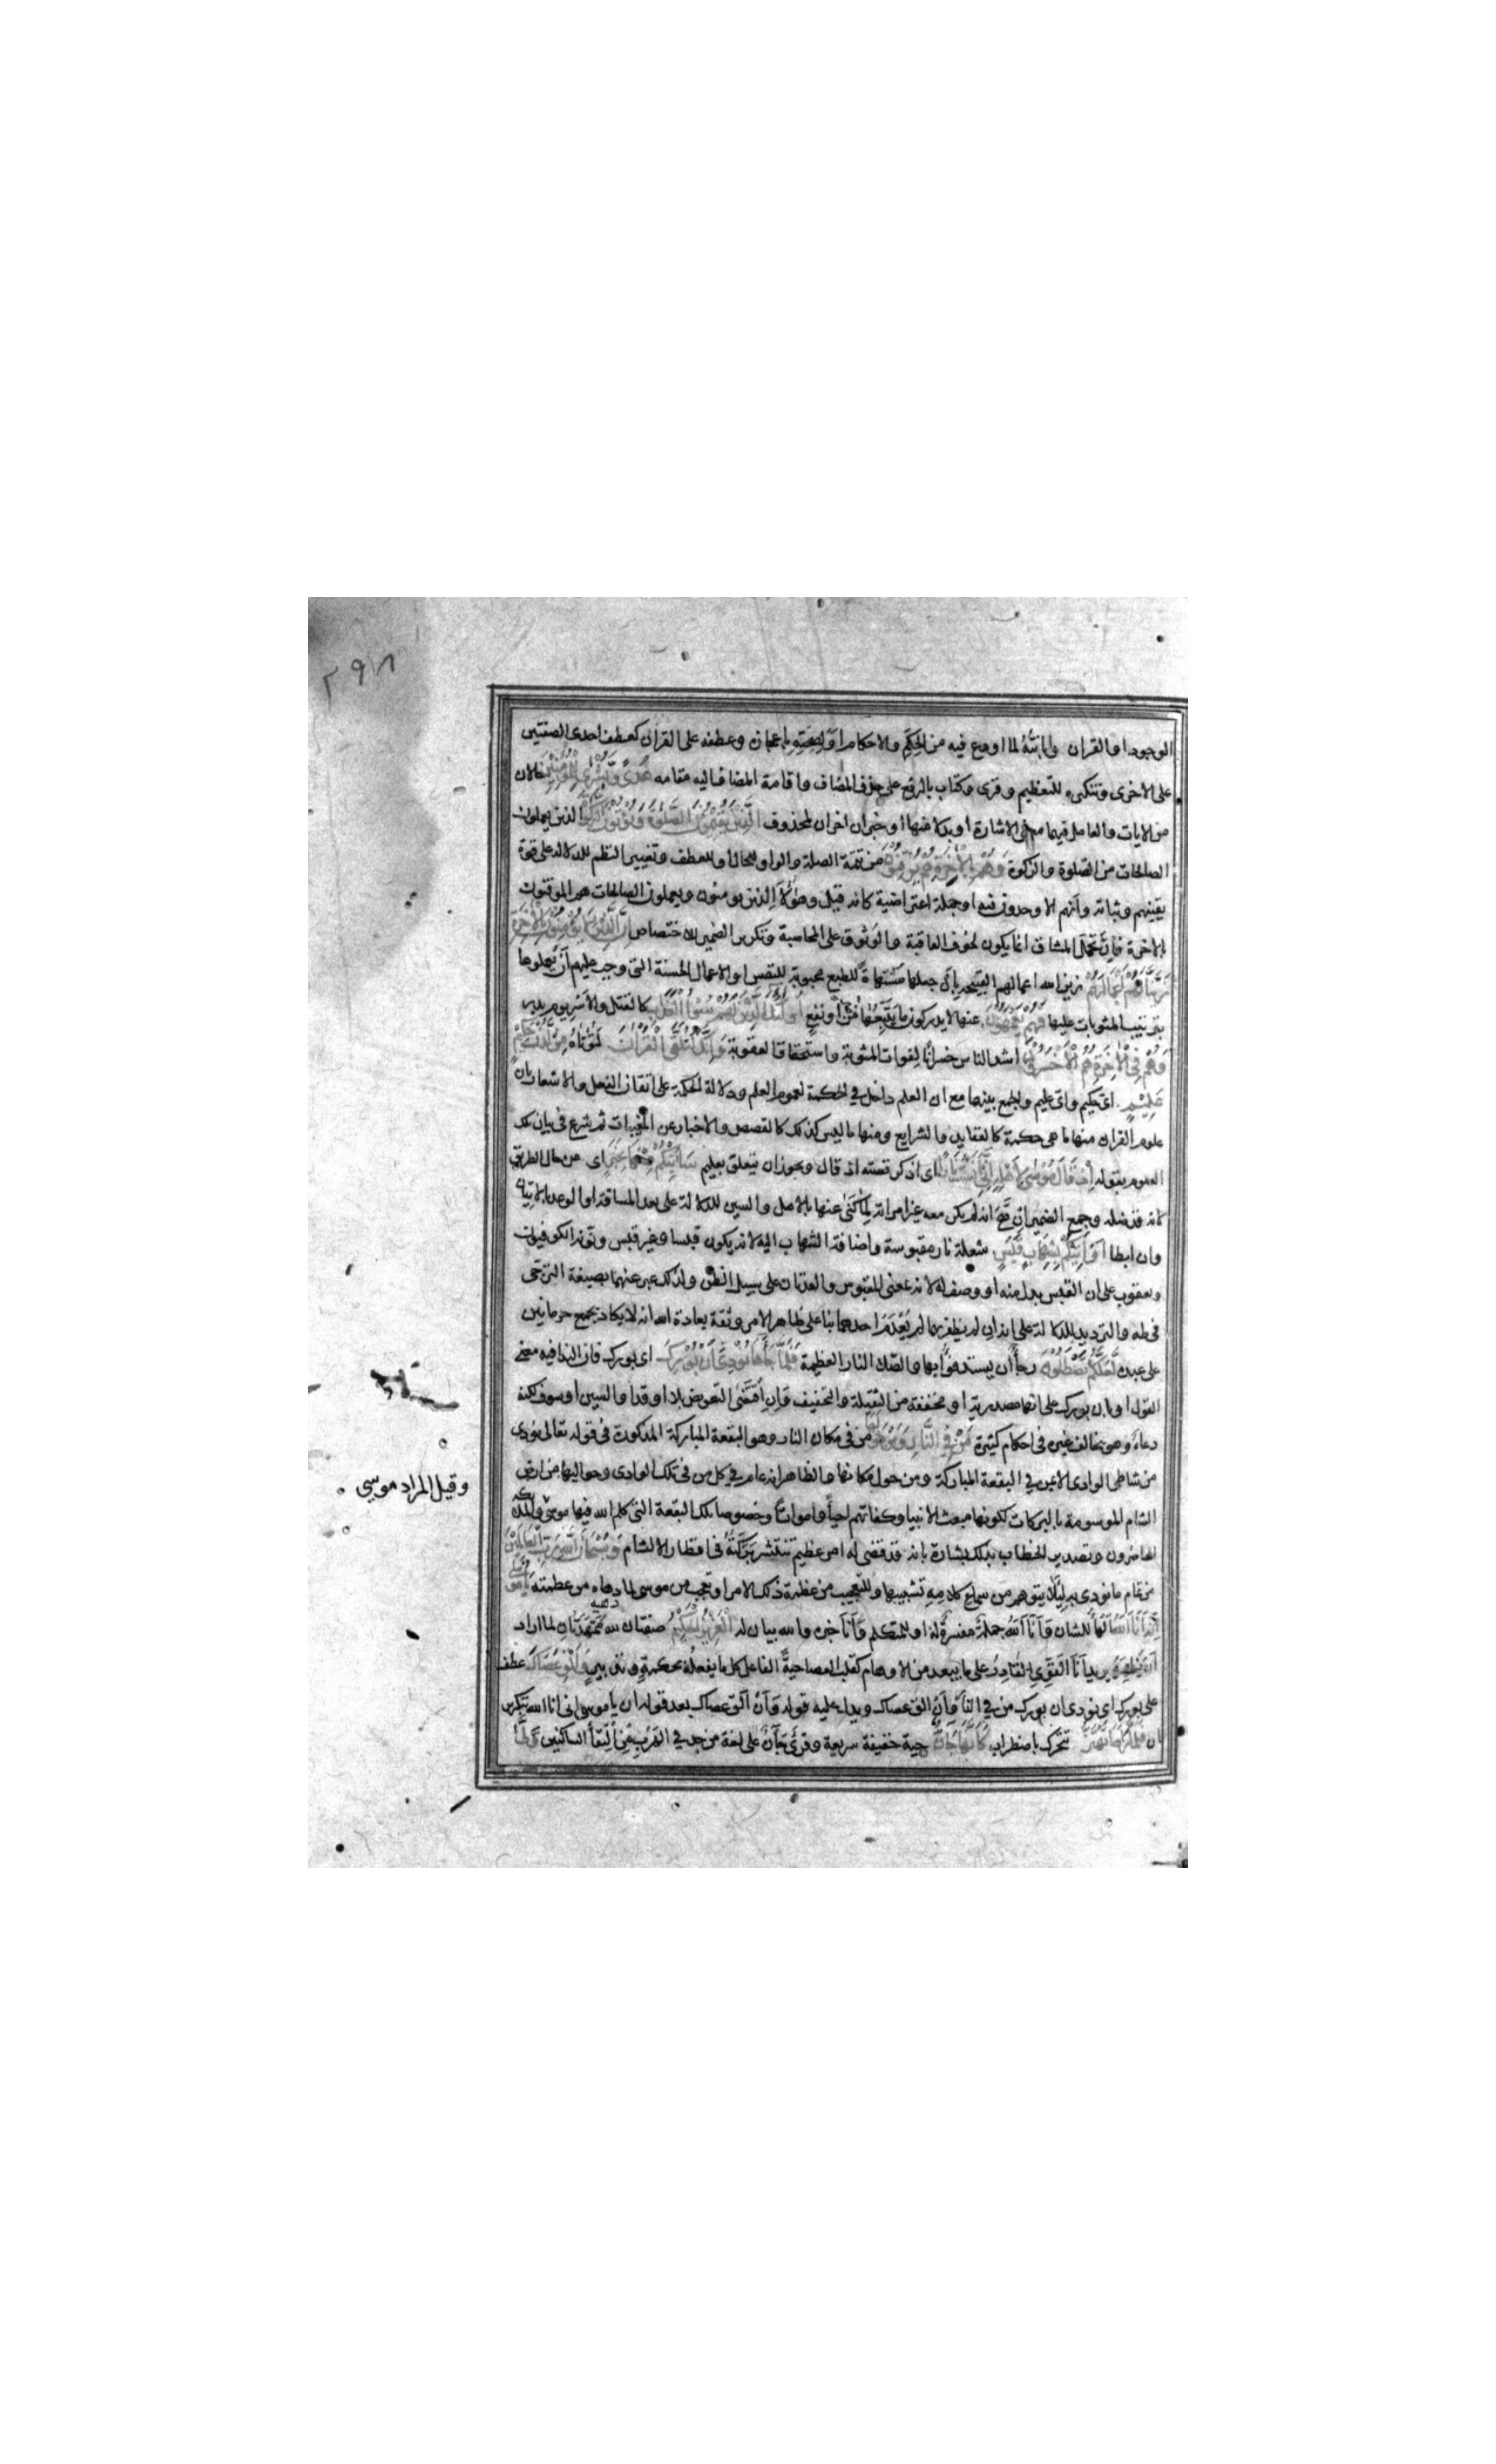 ٢٩٨
الوجود او القران وابانته لما اودع فيه من الحِكَم والاحكام او لصحته باعجازه وعطفه على القران كعطف احدى الصفتين
على الاخرى وتنكيره للتعظيم وقرى وكتاب بالرفع على حذف المضاف واقامة المضاف اليه مقامه هُدًى وَبُشْرَى لِلْمُؤْمِنِينَ حالان
من الايات والعامل فيهما معنى الاشارة او بدلان منها او خبران اخران لمحذوف الَّذِينَ يُقِيمُونَ الصَّلوةَ وَيُؤْتُونَ الزَّكوةَ الذين يعملون
الصالحات من الصلوة والزكوة وَهُمْ بِالْآخِرَةِ هُمْ يُوقِنُونَ من تتمة الصلة والواو للحال او للعطف وتغيير النظم للدلالة على قوة
يقينهم وثباته وانهم الاوحدون فيه او جملة اعتراضية كانه قيل وهؤلاء الذين يومنون ويعملون الصالحات هم الموقنون
بالاخرة فان تحمّل المشاق انما يكون لخوف العاقبة والوثوق على المحاسبة وتكرير الضمير للاختصاص إِنَّ الَّذِينَ لَا يُؤْمِنُونَ بِالْآخِرَةِ
زَيَّنَّا لَهُمْ أَعْمَالَهُمْ زين الله اعمالهم القبيحة بان جعلها مشتهاة للطبع محبوبة للنفس او الاعمال الحسنة التى وجب عليهم أن يعملوها
بترتيب المثوبات عليها فَهُمْ يَعْمَهُونَ عنها لا يدركون ما يتبعها من ضر او نفع أُولئِكَ الَّذِينَ لَهُمْ سُوءُ الْعَذَابِ كالقتل والاسر يوم بدر
وَهُمْ فِي الْآخِرَةِ هُمُ الْأَخْسَرُونَ اشد الناس خسرانا لفوات المثوبة واستحقاق العقوبة وَإِنَّكَ لَتُلَقَّى الْقُرْآنَ لتؤتاه مِنْ لَدُنْ حَكِيمٍ
عَلِيمٍ اى حكيم واى عليم والجمع بينهما مع ان العلم داخل في الحكمة لعموم العلم ودلالة الحكمة على اتقان الفعل والاشعار بان
علوم القران منها ما هى حكمة كالعقايد والشرايع ومنها ما ليس كذلك كالقصص والاخبار عن المغيبات ثم شرع في بيان تلك
العلوم بقوله إِذْ قَالَ مُوسَى لِأَهْلِهِ إِنِّي آنَسْتُ نَارًا اى اذكر قصته اذ قال ويجوز ان يتعلق بعليم سَآتِيكُمْ مِنْهَا بِخَبَرٍ اى عن حال الطريق
لانه قد ضله وجمع الضمير ان صح انه لم يكن معه غير امراته لما كنى عنها بالاهل والسين للدلالة على بعد المسافة او الوعد بالاتيان
وان ابطا أَوْ آتِيكُمْ بِشِهَابٍ قَبَسٍ شعلة نار مقبوسة واضافة الشهاب اليه لانه يكون قبسا وغير قبس ونونه الكوفيون
ويعقوب على ان القبس بدل منه او وصف له لانه بمعنى المقبوس والعدتان على سبيل الظن ولذلك عبر عنهما بصيغة الترجى
فى طه والترديد للدلالة على انه ان لم يظفر بهما لم يعدم احدهما بنا على ظاهر الامر وثقة بعادة الله انه لا يكاد يجمع حرمانين
على عبده لَعَلَّكُمْ تَصْطَلُونَ رجاء ان يستدفؤا بها والصلا النار العظيمة فَلَمَّا جَاءَهَا نُودِيَ أَنْ بُورِكَ اى بورك فان الندا فيه معنى
القول او بان بورك على انها مصدرية او مخففة من الثقيلة والتخفيف وان اقتضى التعويض بلا او قد او السين او سوف لكنه
دعاء وهو يخالف غيره فى احكام كثيرة مَنْ فِي النَّارِ وَمَنْ حَوْلَهَا من فى مكان النار وهو البقعة المباركة المذكورة فى قوله تعالى نودى
من شاطى الوادى الايمن في البقعة المباركة ومن حول مكانها والظاهر انه عام في كل من فى تلك الوادى وحواليها من ارض
الشام الموسومة بالبركات لكونها مبعث الانبيا وكفاتهم احياء وامواتا وخصوصا تلك البقعة التى كلم الله فيها موسى والملئكه
وقيل المراد موسى
الحاضرون وتصدير الخطاب بذلك بشارة بانه قد قضى له امر عظيم تنتشر بركته فى اقطار الشام وَسُبْحَانَ اللَّهِ رَبِّ الْعَالَمِينَ
من تمام ما نودى به لئلا يتوهم من سماع كلامه تشبيها وللتعجيب من عظمة ذلك الامر او تعجب من موسى لما دهاه من عظمته يَا مُوسَى
إِنَّهُ أَنَا اللَّهُ الهاء للشان وأنا الله جملة مفسرة له او للمتكلم وأنا خبره والله بيان له الْعَزِيزُ الْحَكِيمُ صفتان لله ممهدتان لما اراد
ان يظهره يريد أنا القوى القادر على ما يبعد من الاوهام كقلب العصا حية الفاعل كل ما يفعله بحكمة وتدبير وَأَلْقِ عَصَاكَ عطف
على بورك اى نودى ان بورك من في النار وان الق عصاك ويدل عليه قوله وأن ألق عصاك بعد قوله ان يا موسى انى انا الله بتكرير
ان فَلَمَّا رَآهَا تَهْتَزُّ تتحرك باضطراب كَأَنَّهَا جَانٌّ حية خفيفة سريعة وقرئ جأن على لغة من جد في الهرب من التقا الساكنين وَلَّى